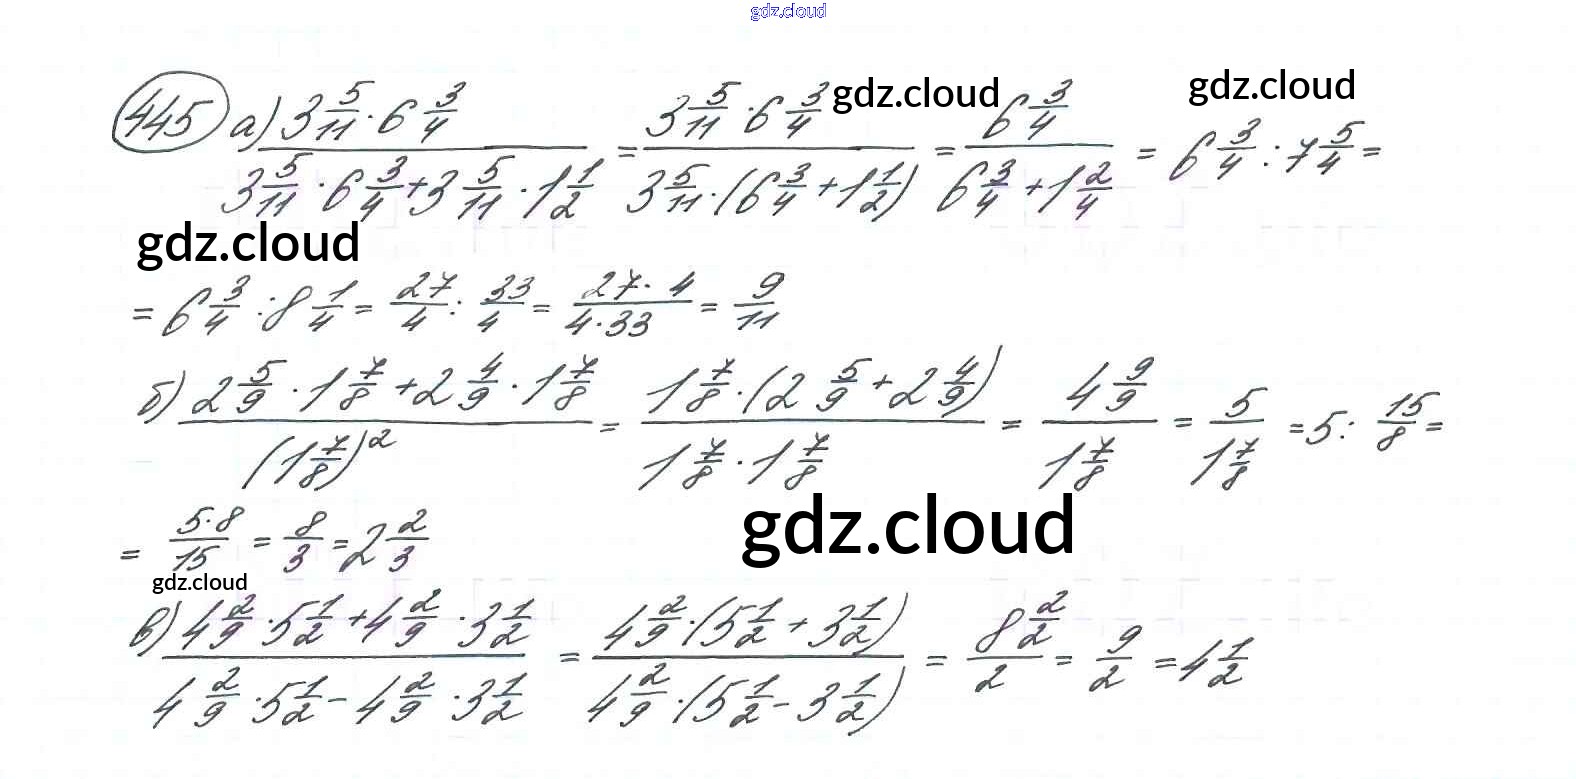 gdz.cloud
445 а) (3 5/11 · 6 3/4)/(3 5/11 · 6 3/4 + 3 5/11 · 1 1/2) = (3 5/11 · 6 3/4)/(3 5/11 · (6 3/4 + 1 1/2)) = (6 3/4)/(6 3/4 + 1 2/4) = 6 3/4 : 7 5/4 =
gdz.cloud
gdz.cloud
gdz.cloud
= 6 3/4 : 8 1/4 = 27/4 : 33/4 = (27 · 4)/(4 · 33) = 9/11
б) (2 5/9 · 1 7/8 + 2 4/9 · 1 7/8)/(1 7/8)² = (1 7/8 · (2 5/9 + 2 4/9))/(1 7/8 · 1 7/8) = (4 9/9)/(1 7/8) = 5/(1 7/8) = 5 : 15/8 =
= (5 · 8)/15 = 8/3 = 2 2/3
gdz.cloud
gdz.cloud
в) (4 2/9 · 5 1/2 + 4 2/9 · 3 1/2)/(4 2/9 · 5 1/2 − 4 2/9 · 3 1/2) = (4 2/9 · (5 1/2 + 3 1/2))/(4 2/9 · (5 1/2 − 3 1/2)) = (8 2/2)/2 = 9/2 = 4 1/2